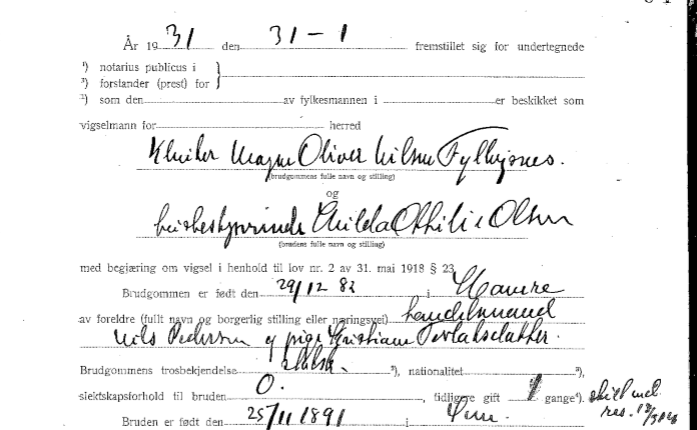 År 1931 den 31-1 fremstillet sig for undertegnede
¹) notarius publicus i
²) forstander (prest) for
³) som den av fylkesmannen i er beskikket som
vigselmann for herred
Magne Oliver Nilsen Fylkesnes.
(brudgommens fulle navn og stilling)
og
husbestyrerinde Hilda Othilie Olsen
(brudens fulle navn og stilling)
med begjæring om vigsel i henhold til lov nr. 2 av 31. mai 1918 § 23
Brudgommen er født den 29/12 82 i
av foreldre (fullt navn og borgerlig stilling eller næringsvei) handelsmand
Nils Pedersen og pige Kristiane
Brudgommens trosbekjendelse statsk. ³), nationalitet ³),
slektskapsforhold til bruden 0. , tidligere gift 1 gange⁴). skilt ved
res.
Bruden er født den 25/11 1891 i